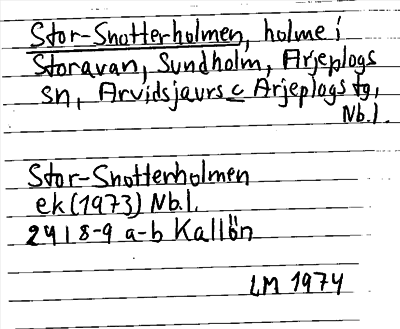 Stor-Snotterholmen, holme i
Storavan, Sundholm, Arjeplogs
sn, Arvidsjaurs c Arjeplogs tg,
Nb.l.
Stor-Snotterholmen
ek (1973) Nb.l.
24I 8-9 a-b Kallön
LM 1974